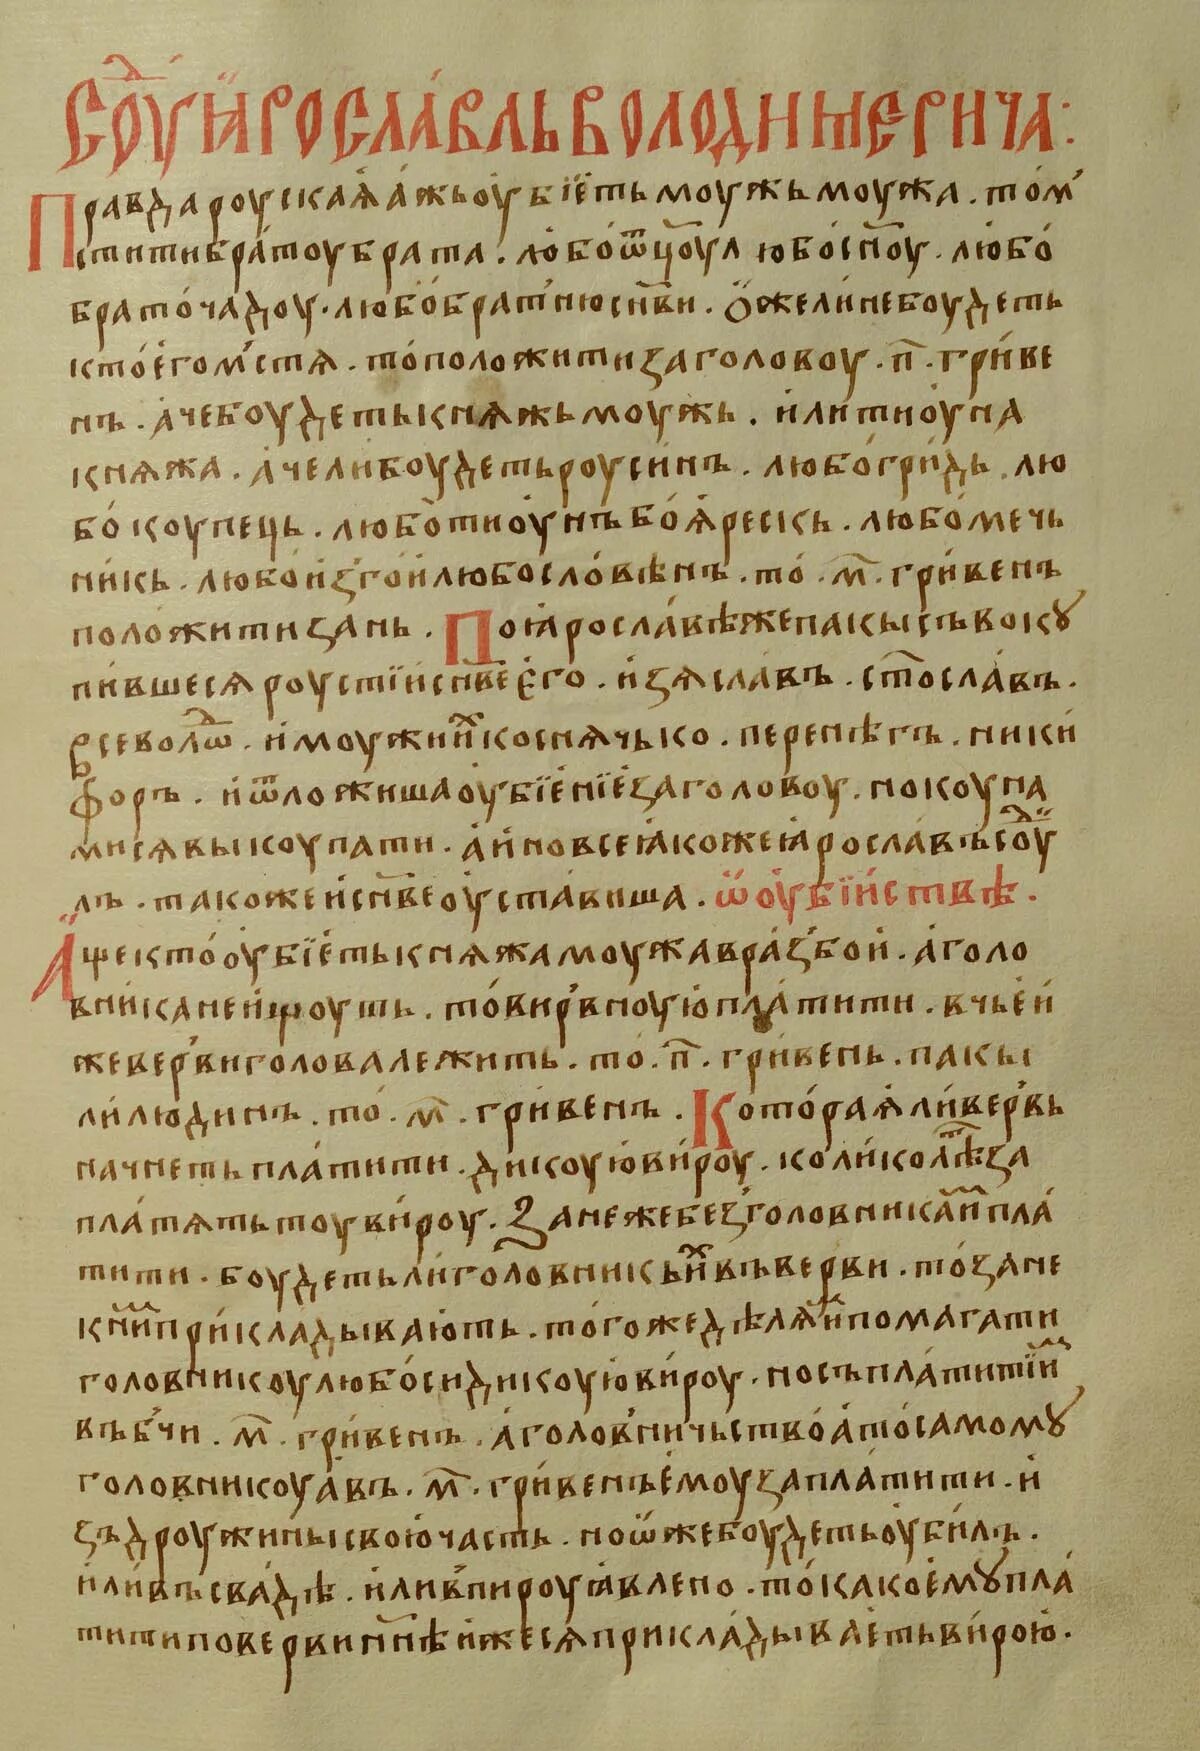 Соуⷣ ꙗрославль володимерича:
Правда роускаѧ́ а́жь оубїе́ть моужь моужа. то́ м̾
стити бра́тоу брата. лю́бо́ ѿцоу҃ любо́ сн҃оу. лю́бо́
брато́чадоу. любо́ брат̾ню сн҃ви. ѻ́жели не боудеть
кто́ е́го м̾стѧ. то́ положити за головоу. п҃. гри́ве
нъ. а́че боудеть кнѧжь моужь. и́ли тиоуна
кнѧжа. а́че ли боудеть роуси́нъ. любо́ гри́дь. лю
бо́ коупець. любо тиоунъ боѧ́рескь. любо мечь
ни́кь. любо и́з̾гои́ любо слове́нѣнъ. то́. м҃. гри́венъ
поло́жити за нь. По ꙗросла́вѣ же пакы съвокꙋ
пи́вшесѧ роустїи́ сн҃ве е҆го. и́зѧсла́въ. ст҃осла́въ.
всеволѿⷣ. и моужи и́ⷯ коснѧчько. перенѣгъ. ники́
форъ. и́ ѿложиша оубїе́нїе́ за головоу. но коуна
ми сѧ выкоупати. а́ и́но все ꙗкоже ꙗросла́въ соуⷣ
лъ. такоже и́ сн҃ве оуста́виша. ѿ оубїи́ствѣ.
Аще кто́ оубїе́ть кнѧжа моужа в ра́з̾бои́. а́ голо
вни́ка не и́щоуть. то́ вир̾вноую пла́тити. в чье́и́
же вер̾ви голова лежить. то́. п҃. гри́вень. пакы
ли́ людинъ. то́. м҃. гри́венъ. Кото́раѧ́ ли́ вер̾вь
начнеть пла́тити. дикоую́ ви́роу. коли́ко лѣⷮ за
пла́тѧть тоу ви́роу. Занеже без̾ головника и́ⷨ пла́
тити. боудеть ли́ головникь и́ⷯ въ верви. то́ зане
к ни́ⷨ при́кладываю́ть. того́же дѣлѧ́ и́ⷨ помагати
головникоу любо́ си дикоую́ ви́роу. но съпла́тити и́ⷨ
въб̾чи. м҃. гри́венъ. а́ голов̾ничьство́ а́ то́ самомꙋ
головникоу а́въ. м҃. гри́венъ е́моу запла́тити. и́
зъ дроужины свою́ часть. но ѿже боудеть оуби́лъ.
и́ли́ въ сва́дѣ. и́ли в̾ пироу ꙗвлено. то́ како е́мꙋ пла́
тити по верви нн҃ѣ и́же сѧ прикла́дываеть ви́рою́.